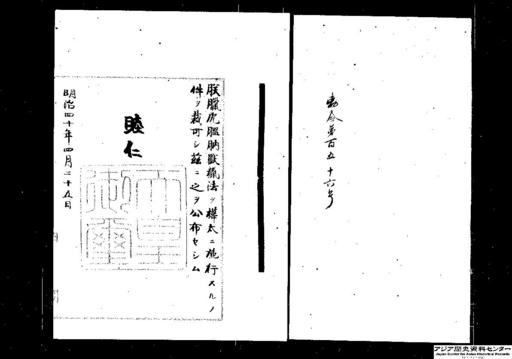 勅令第百五十六号
朕臘虎膃肭獣猟法ヲ樺太ニ施行スルノ
件ヲ裁可シ茲ニ之ヲ公布セシム
睦仁
天皇御璽
明治四十年四月二十五日
アジア歴史資料センター
Japan Center for Asian Historical Records